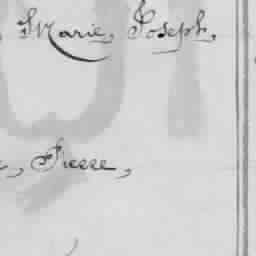 Marie, Joseph,
, Pierre,